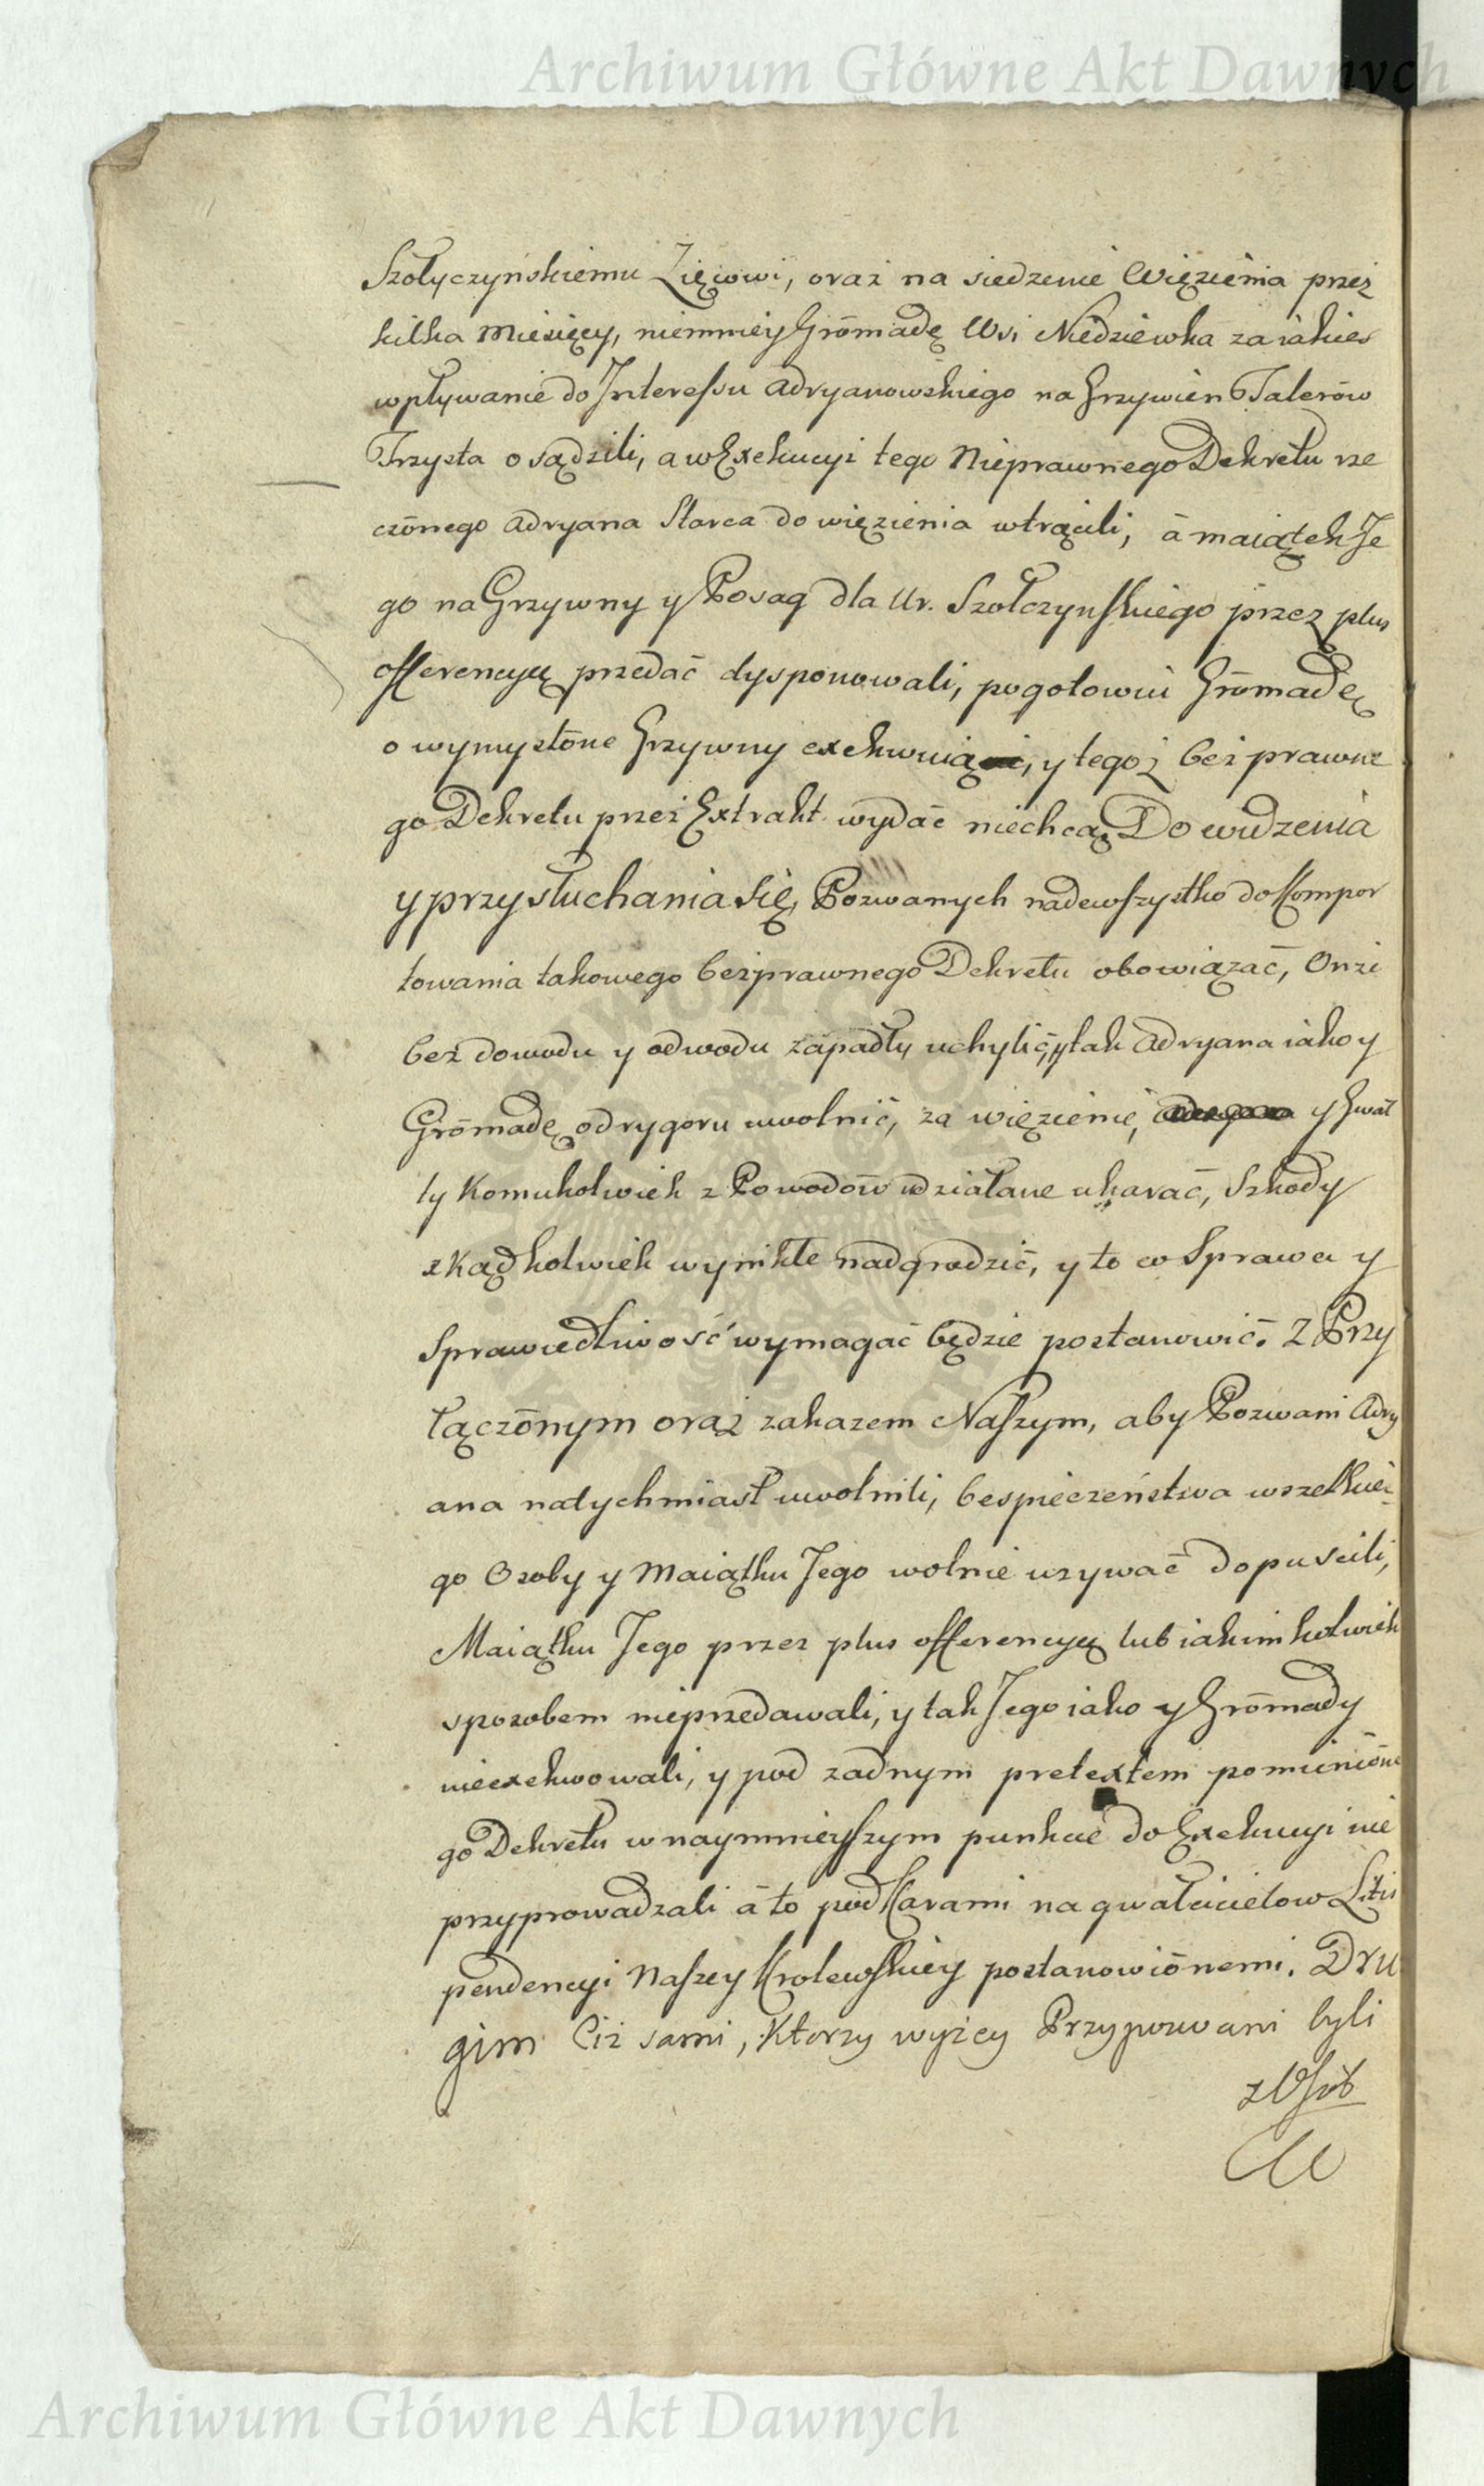 Archiwum Główne Akt Dawnych
Szołyczyńskiemu Zięciowi, oraz na siedzenie Więzienia przez
kilka Miesięcy, niemniey Grōmadę Wsi Niedziewka za iakies
wpływanie do Interessu Adryanowskiego na Grzywien Talerōw
Trzysta osądzili, a w Exekucyi tego Nieprawnego Dekretu rze
czōnego Adryana Starca do więzienia wtrącili, á maiątek Je
go na Grzywny y Posag dla Ur. Szołczynskiego przez plus
offerencyą przedać dysponowali, pogotowiu Grōmadę
o wymyslōne Grzywny exekwuią, y tegoż bezprawne
go Dekretu przez Extrakt wydać niechcą Do widzenia
y przysłuchania się, Pozwanych nadewszystko do Kompor
towania takowego bezprawnego Dekretu obowiązać, Onże
bez dowodu y odwodu zapadły uchylić, y tak Adryana iako y
Grōmadę od rygoru uwolnić, za więzienie, y Gwał
ty Komukolwiek z Powodōw udziałane ukarać, Szkody
zkądkolwiek wynikłe nadgrodzić, y to co Sprawa y
Sprawiedliwość wymagać będzie postanowić. Z Przy
łączōnym oraz zakazem Naszym, aby Pozwani Adry
ana natychmiast uwolnili, bespieczeństwa wszelkie-
go Osoby y Maiątku Jego wolnie uzywać dopuscili,
Maiątku Jego przez plus offerencyą lub iakimkolwiek
sposobem nieprzedawali, y tak Jego iako y Grōmady
nieexekwowali, y pod zadnym pretextem pomieniōne
go Dekretu w naymnieyszym punkcie do Exekucyi nie
przyprowadzali á to pod Karami na gwałcicielow Litis
pendencyi Naszey Krolewskiey postanowiōnemi. Dru
gim Ciż sami, Ktorzy wyżey Przypozwani byli
z Osōb
Archiwum Główne Akt Dawnych